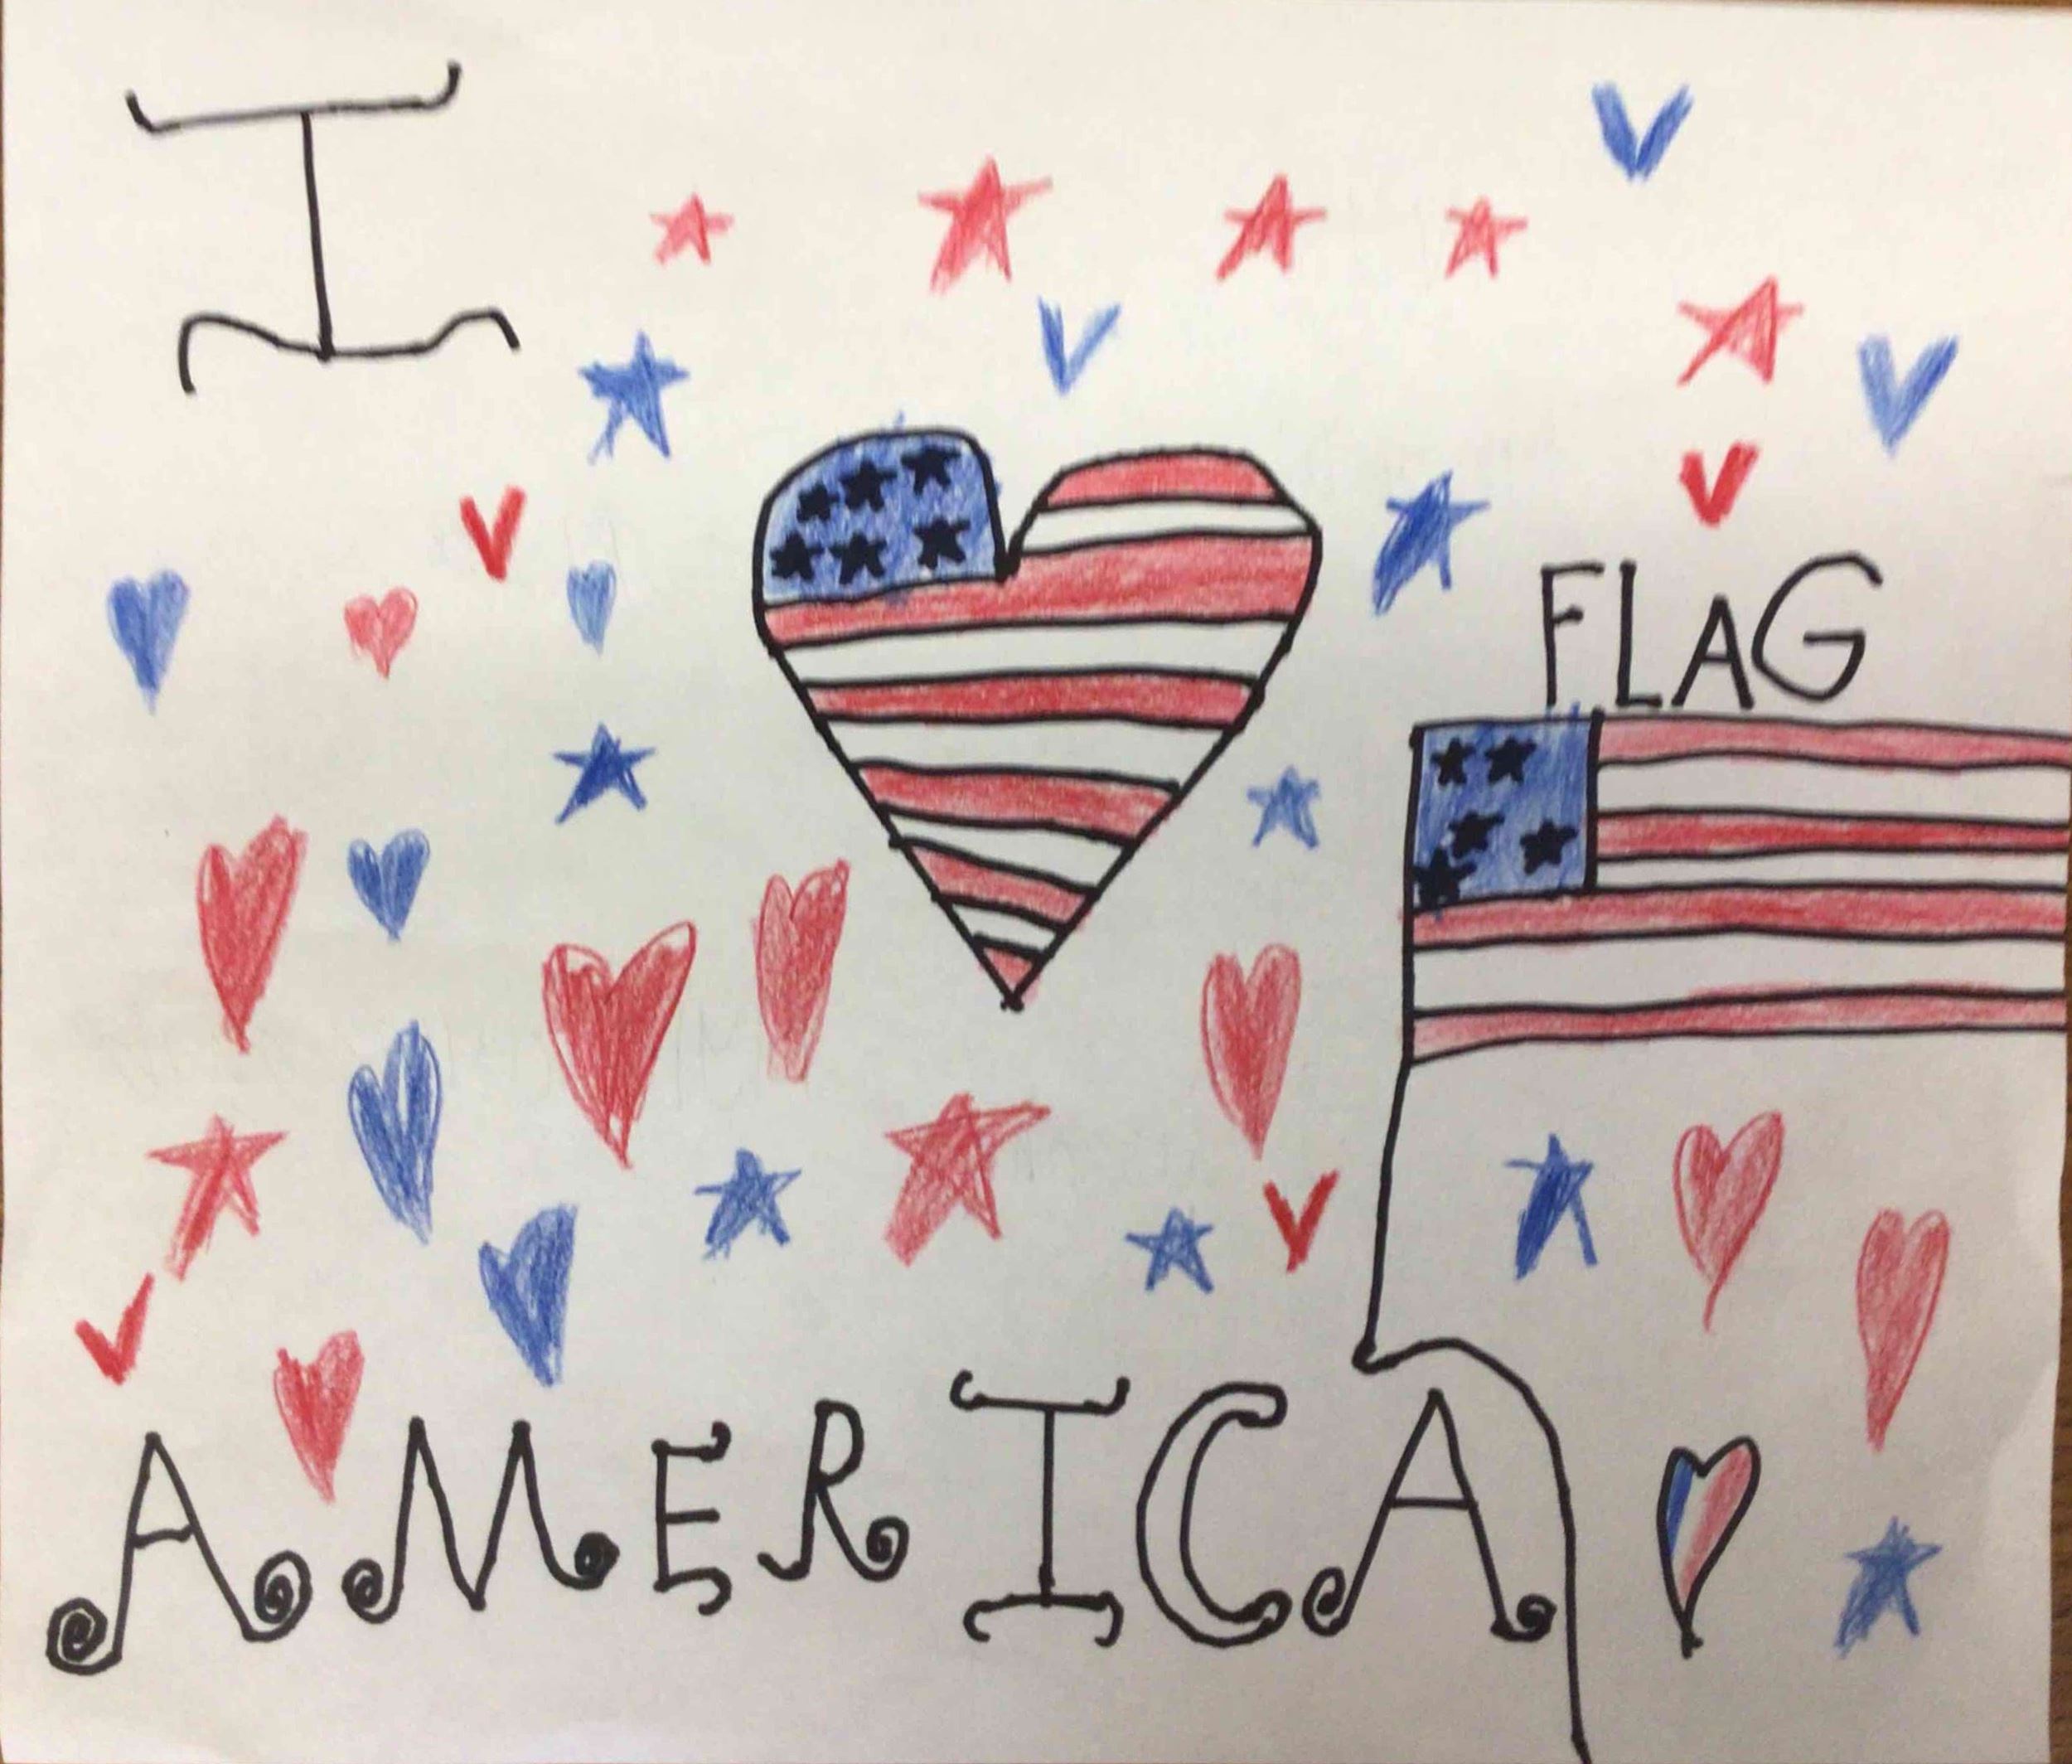 I
FLAG
AMERICA